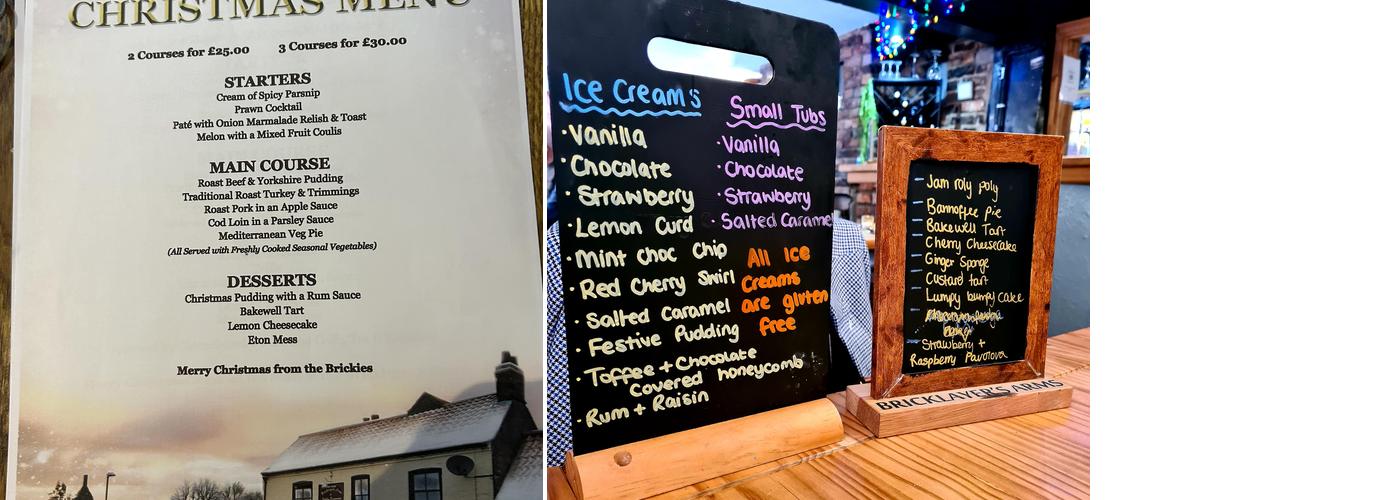 CHRISTMAS MENU
2 Courses for £25.00 3 Courses for £30.00
STARTERS
Cream of Spicy Parsnip
Prawn Cocktail
Paté with Onion Marmalade Relish & Toast
Melon with a Mixed Fruit Coulis
MAIN COURSE
Roast Beef & Yorkshire Pudding
Traditional Roast Turkey & Trimmings
Roast Pork in an Apple Sauce
Cod Loin in a Parsley Sauce
Mediterranean Veg Pie
(All Served with Freshly Cooked Seasonal Vegetables)
DESSERTS
Christmas Pudding with a Rum Sauce
Bakewell Tart
Lemon Cheesecake
Eton Mess
Merry Christmas from the Brickies
Ice Creams
·Vanilla
·Chocolate
·Strawberry
·Lemon Curd
·Mint Choc Chip
·Red Cherry Swirl
·Salted Caramel
·Festive Pudding
·Toffee + Chocolate
Covered honeycomb
·Rum + Raisin
Small Tubs
·Vanilla
·Chocolate
·Strawberry
·Salted Caramel
All Ice
Creams
are gluten
free
- Jam roly poly
- Bannoffee pie
- Bakewell Tart
- Cherry Cheesecake
- Ginger Sponge
- Custard tart
- Lumpy bumpy cake
- Strawberry +
Raspberry Pavolova
BRICKLAYER'S ARMS